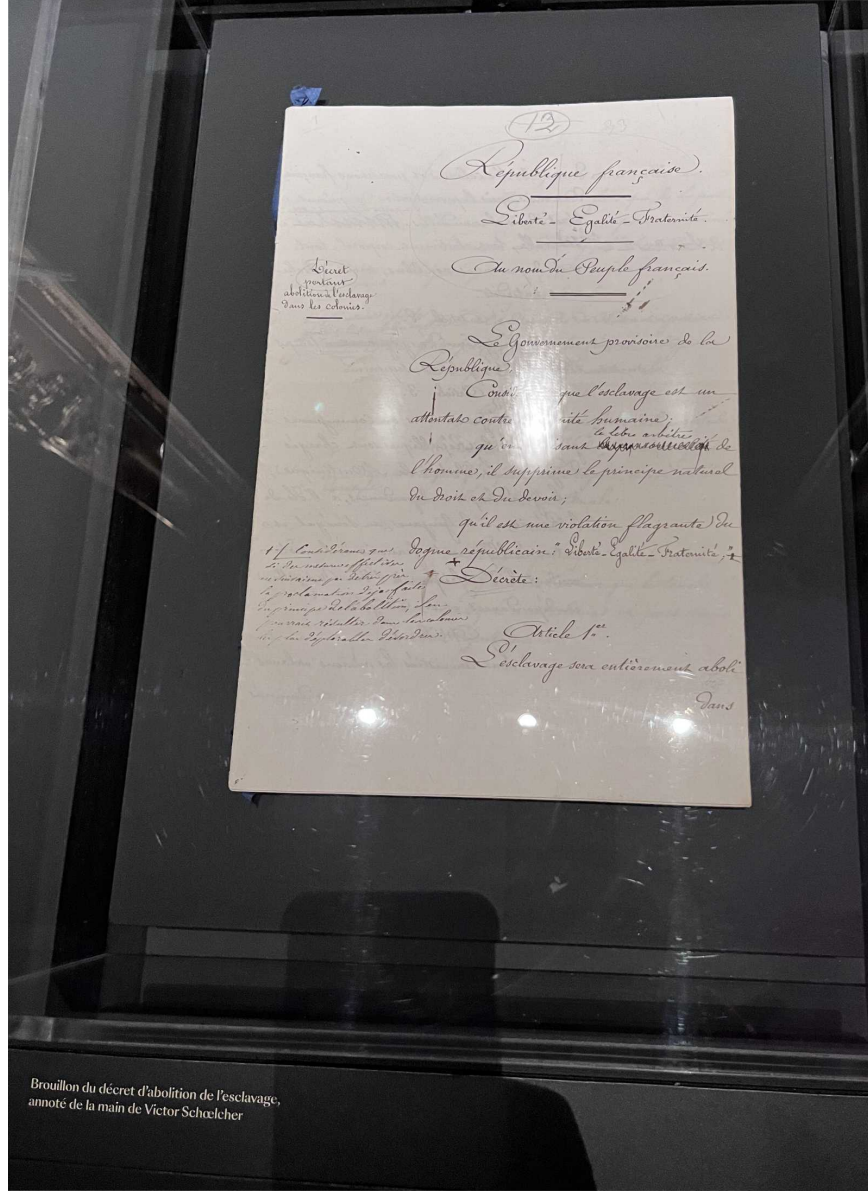 12
République française.
Liberté - Egalité - Fraternité.
Au nom du Peuple français.
Décret
portant
abolition de l'esclavage
dans les colonies.
Le Gouvernement provisoire de la
République
que l'esclavage est un
attentat contre humaine;
le libre arbitre
de
l'homme, il supprime le principe naturel
du droit et du devoir;
qu'il est une violation flagrante du
dogme républicain: "Liberté - Egalité - Fraternité,"
+
Décrète:
+ Considérant que
si des mesures effectives
ne suivaient pas de très près
la proclamation déjà faite
du principe de l'abolition, il en
pourrait résulter dans les colonies
les plus déplorables désordres.
Article 1er.
L'esclavage sera entièrement aboli
dans
Brouillon du décret d'abolition de l'esclavage,
annoté de la main de Victor Schœlcher